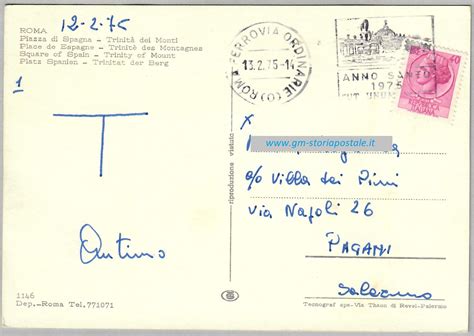 12-2-75
ROMA
Piazza di Spagna - Trinità dei Monti
Place de Espagne - Trinité des Montagnes
Square of Spain - Trinity of Mount
Platz Spanien - Trinitat der Berg
1
T
Antimo
1146
Dep.-Roma Tel.771071
riproduzione vietata
ROMA FERROVIA ORDINARIE
13.2.75-14
ANNO SANTO
1975
UT UNUM
40
www.gm-storiapostale.it
c/o Villa dei Pini
via Napoli 26
PAGANI
Salerno
Tecnograf spe-Via Thaon di Revel-Palermo